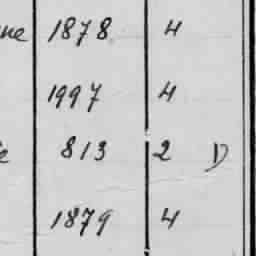 ne 1878 4
1997 4
e 813 2 D
1879 4